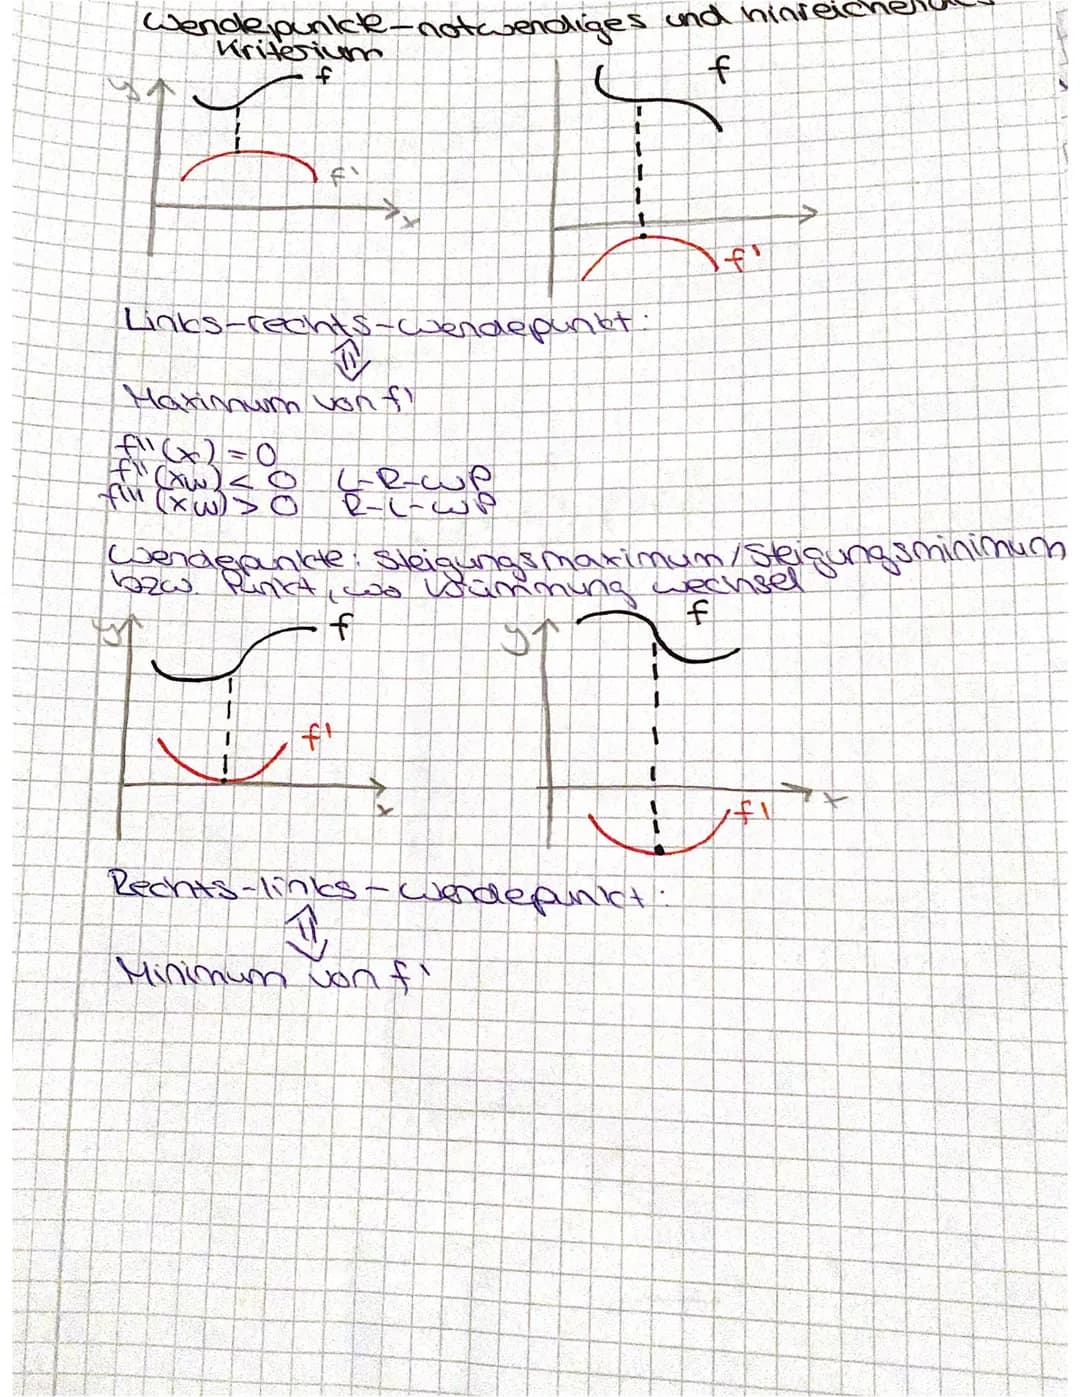 Wendepunkte-notwendiges und hinreichendes
Kriterium
y f f
f' x f'
Links-rechts-Wendepunkt:
⇕
Maximum von f'
f''(x) = 0
f''(xw) < 0 L-R-WP
f'''(xw) > 0 R-L-WP
Wendepunkte: Steigungsmaximum/Steigungsminimum
bzw. Punkt, wo Krümmung wechsel
y f y f
f' x f' x
Rechts-links-Wendepunkt:
⇕
Minimum von f'